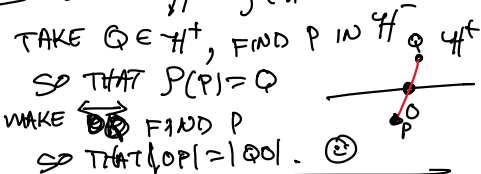 TAKE Q ∈ ℋ⁺, FIND P IN ℋ⁻
SO THAT ρ(P) = Q
MAKE FIND P
SO THAT |OP| = |QO|. ☺
Q ℋ⁺
O
P